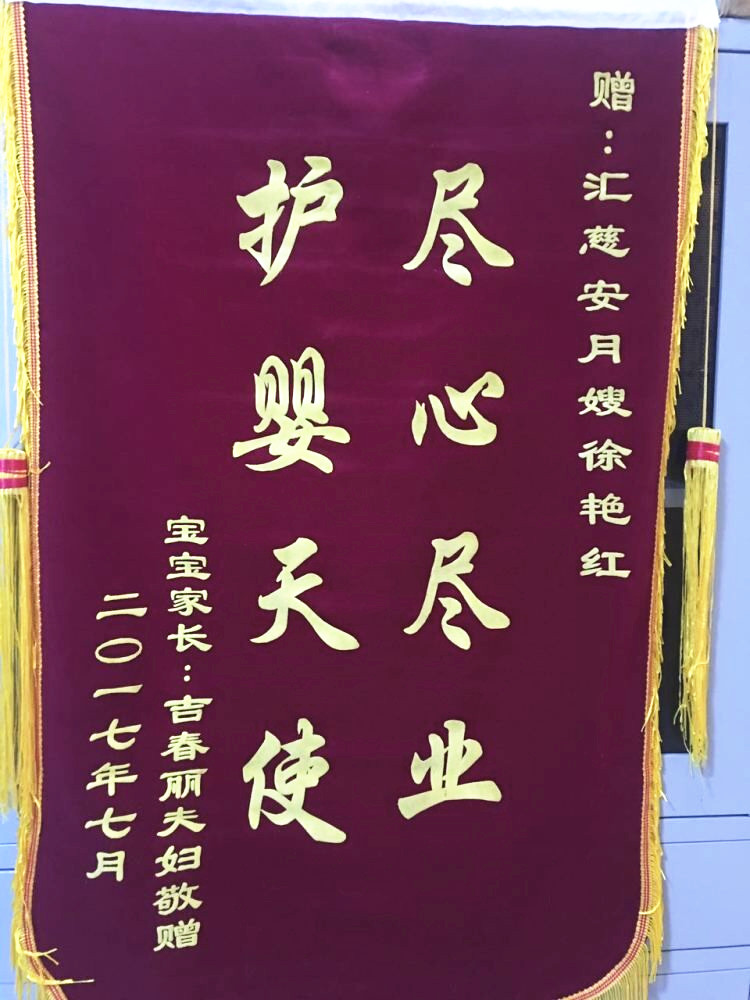 赠：汇慈安月嫂徐艳红
尽心尽业
护婴天使
宝宝家长：吉春丽夫妇敬赠
二〇一七年七月